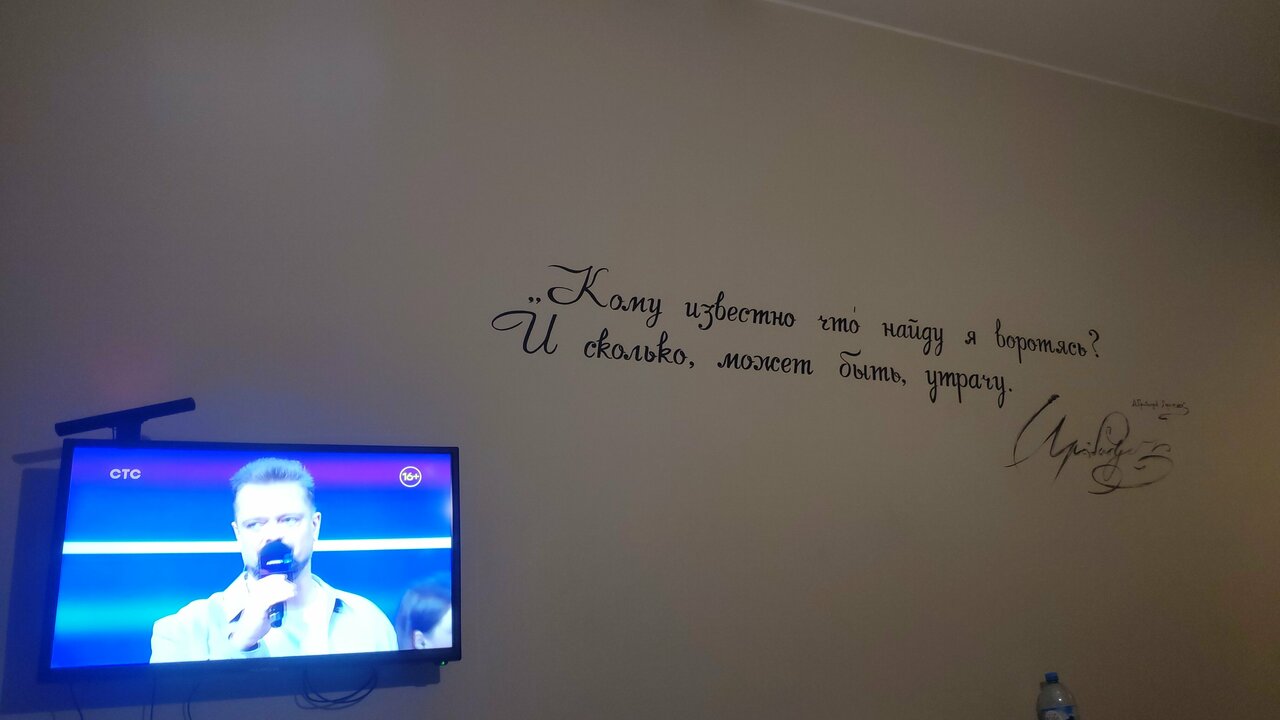 „Кому известно что́ найду я воротясь?
И сколько, может быть, утрачу.
СТС
16+